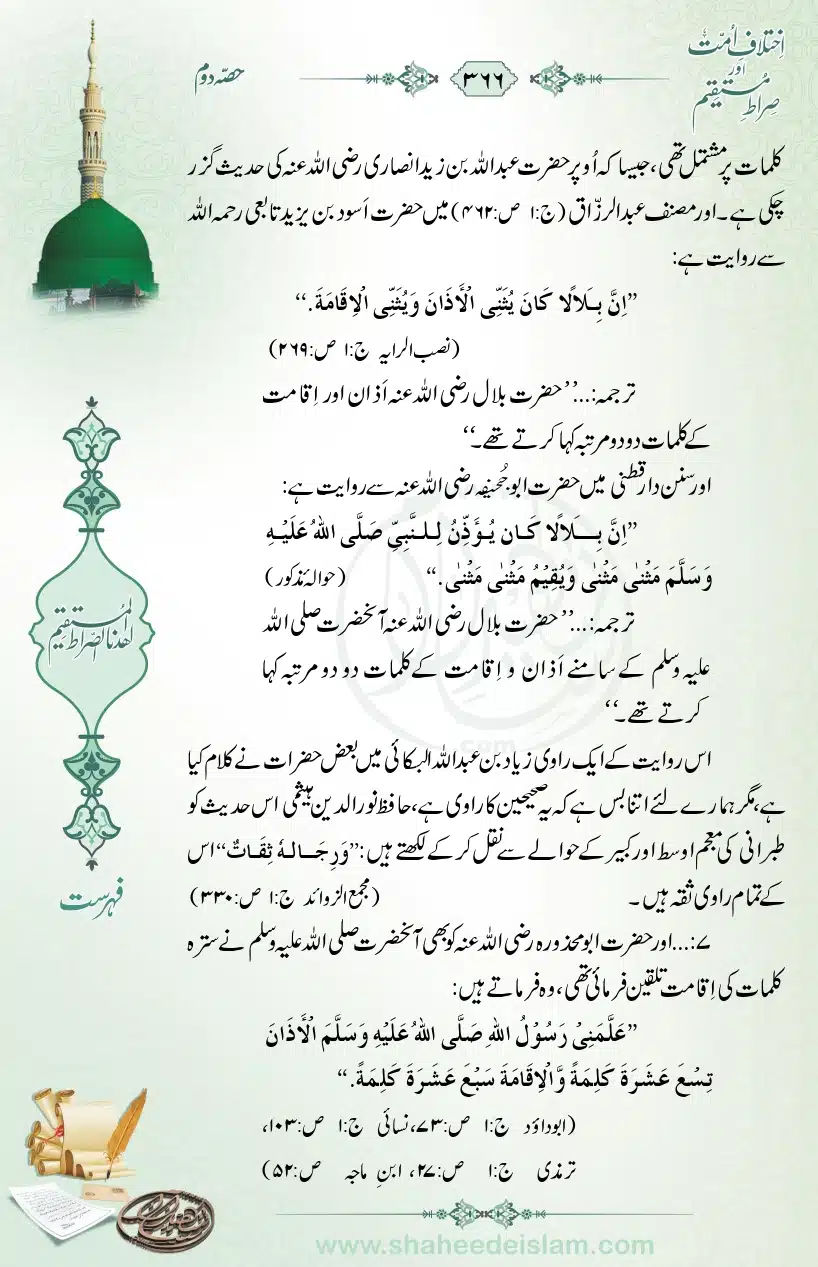 اِختلافِ اُمّت
اور
صِراطِ مُستقیم
۳۶۶
حصّہ دوم
کلمات پر مشتمل تھی، جیسا کہ اُوپر حضرت عبداللہ بن زید انصاری رضی اللہ عنہ کی حدیث گزر
چکی ہے۔ اور مصنف عبدالرزّاق (ج:۱ ص:۴۶۲) میں حضرت اَسود بن یزید تابعی رحمہ اللہ
سے روایت ہے:
”اِنَّ بِلَالًا کَانَ یُثَنِّی الْأَذَانَ وَیُثَنِّی الْاِقَامَةَ.“
(نصب الرایہ ج:۱ ص:۲۶۹)
ترجمہ:...’’حضرت بلال رضی اللہ عنہ اَذان اور اِقامت
کے کلمات دو دو مرتبہ کہا کرتے تھے۔‘‘
اور سنن دارقطنی میں حضرت ابو جُحیفہ رضی اللہ عنہ سے روایت ہے:
”اِنَّ بِلَالًا کَان یُؤَذِّنُ لِلنَّبِیِّ صَلَّی اللهُ عَلَیْهِ
وَسَلَّمَ مَثْنٰی مَثْنٰی وَیُقِیْمُ مَثْنٰی مَثْنٰی.“ (حوالہ مذکور)
ترجمہ:...’’حضرت بلال رضی اللہ عنہ آنحضرت صلی اللہ
علیہ وسلم کے سامنے اَذان و اِقامت کے کلمات دو دو مرتبہ کہا
کرتے تھے۔‘‘
اس روایت کے ایک راوی زیاد بن عبداللہ البکائی میں بعض حضرات نے کلام کیا
ہے، مگر ہمارے لئے اتنا بس ہے کہ یہ صحیحین کا راوی ہے، حافظ نور الدین ہیثمی اس حدیث کو
طبرانی کی معجم اوسط اور کبیر کے حوالے سے نقل کر کے لکھتے ہیں: ’’وَرِجَالهُ ثِقَاتٌ‘‘ اس
کے تمام راوی ثقہ ہیں۔ (مجمع الزوائد ج:۱ ص:۳۳۰)
۷:...اور حضرت ابو محذورہ رضی اللہ عنہ کو بھی آنحضرت صلی اللہ علیہ وسلم نے سترہ
کلمات کی اِقامت تلقین فرمائی تھی، وہ فرماتے ہیں:
”عَلَّمَنِیْ رَسُوْلُ اللهِ صَلَّی اللهُ عَلَیْهِ وَسَلَّمَ الْأَذَانَ
تِسْعَ عَشَرَةَ کَلِمَةً وَّالْاِقَامَةَ سَبْعَ عَشَرَةَ کَلِمَةً.“
(ابوداؤد ج:۱ ص:۷۳، نسائی ج:۱ ص:۱۰۳،
ترمذی ج:۱ ص:۲۷، ابنِ ماجہ ص:۵۲)
اِهْدِنَا الصِّرَاطَ الْمُسْتَقِیْمَ
فہرست
www.shaheedeislam.com